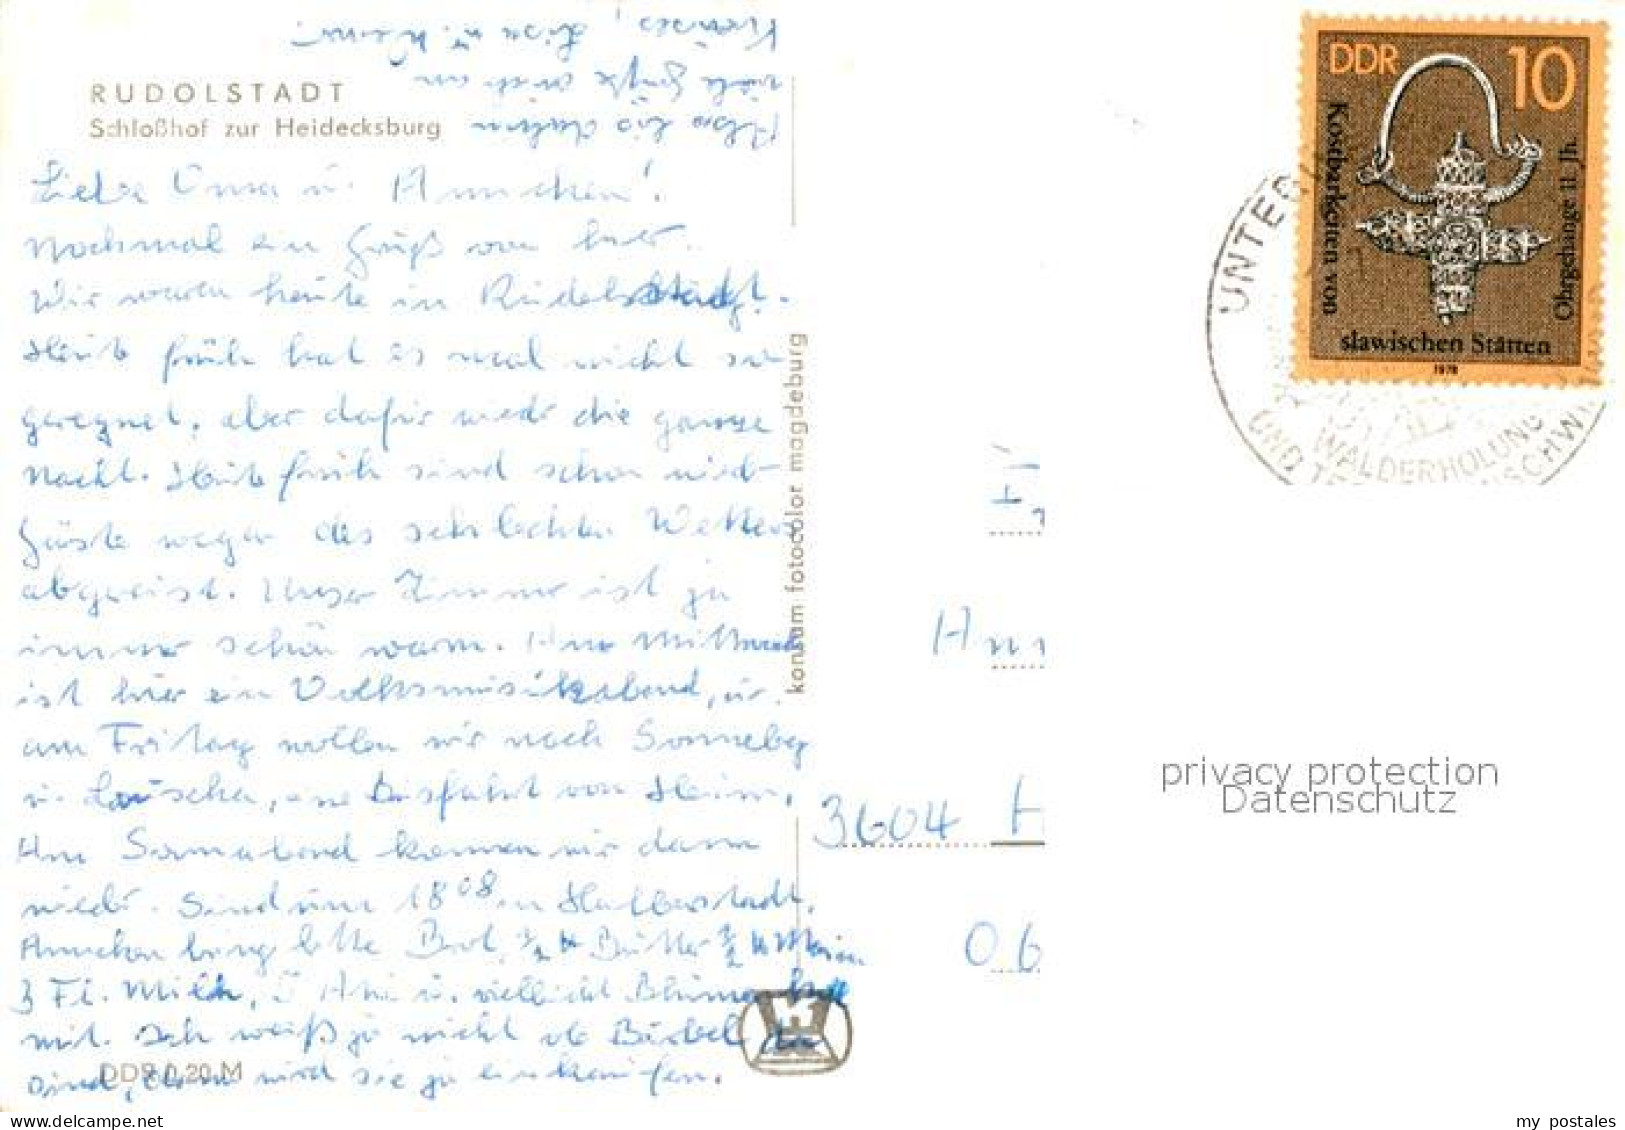 RUDOLSTADT
Schloßhof zur Heidecksburg
Liebe Oma u. Annchen!
Nochmal ein Gruß von hier.
Wir waren heute in Rudolstadt.
Heute früh hat es mal nicht
geregnet, aber dafür wieder die ganze
Nacht. Heute früh sind schon wieder
Gäste wegen des schlechten Wetters
abgereist. Unser Zimmer ist ja
immer schön warm. Am Mittwoch
ist hier ein Volksmusikabend, u.
am Freitag wollen wir nach Sonneberg
u. Lauscha, eine Busfahrt vom Heim.
Am Sonnabend kommen wir dann
wieder. Sind um 18 08 in Halberstadt.
Annchen bring bitte Brot, 1/2 Butter 1/2
3 Fl. Milch, u. vielleicht Blumen
mit. Ich weiß ja nicht ob Bärbel da
sind, dann wird sie ja einkaufen.
Also bis dahin
viele Grüße auch an
Lisa u.
konsum fotocolor magdeburg
DDR 0,20 M
DDR 10
Kostbarkeiten von
slawischen Stätten
Ohrgehänge 11. Jh.
1978
UNTER
WALDERHOLUNG
UND
Ann
3604 H
06
privacy protection
Datenschutz
my_postales